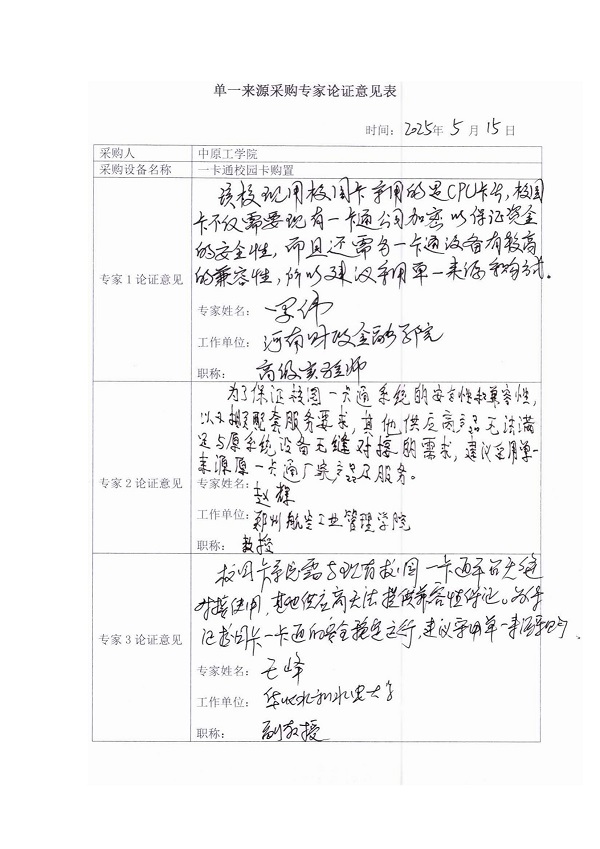 单一来源采购专家论证意见表
时间：2025年 5 月 15 日
采购人 中原工学院
采购设备名称 一卡通校园卡购置
专家1论证意见
该校现用校园卡采用的是CPU卡片，校园
卡不仅需要现有一卡通公司加密以保证资金
的安全性，而且还需与一卡通设备有较高
的兼容性，所以建议采用单一来源采购方式。
专家姓名：伟
工作单位：河南财政金融学院
职称：高级实验师
专家2论证意见
为了保证校园一卡通系统的安全性和兼容性，
以及相关配套服务要求，其他供应商产品无法满
足与原系统设备无缝对接的需求，建议采用单一
来源原一卡通厂家产品及服务。
专家姓名：赵辉
工作单位：郑州航空工业管理学院
职称：教授
专家3论证意见
校园卡系统需与现有校园一卡通平台无缝
对接使用，其他供应商无法提供兼容性保证。为保
证校园卡一卡通的安全稳定运行，建议采用单一来源
专家姓名：峰
工作单位：华北水利水电大学
职称：副教授